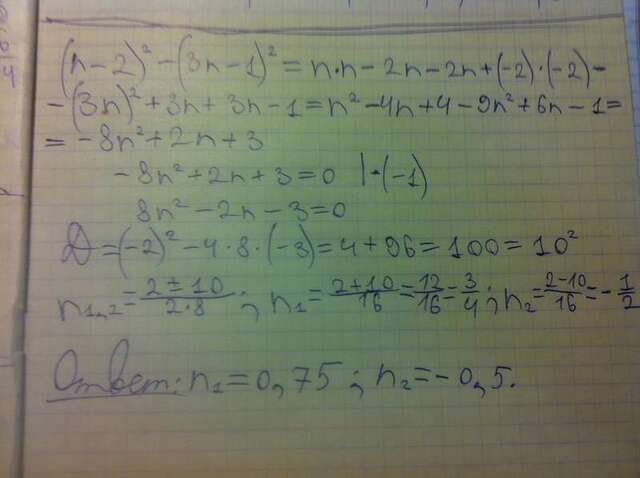 (n-2)² - (3n-1)² = n·n - 2n - 2n + (-2)·(-2) -
- (3n)² + 3n + 3n - 1 = n² - 4n + 4 - 9n² + 6n - 1 =
= -8n² + 2n + 3
-8n² + 2n + 3 = 0 |·(-1)
8n² - 2n - 3 = 0
D = (-2)² - 4·8·(-3) = 4 + 96 = 100 = 10²
n1,2 = 2±10/2·8 ; n1 = 2+10/16 = 12/16 = 3/4 ; n2 = 2-10/16 = -1/2
Ответ: n1 = 0,75 ; n2 = -0,5.